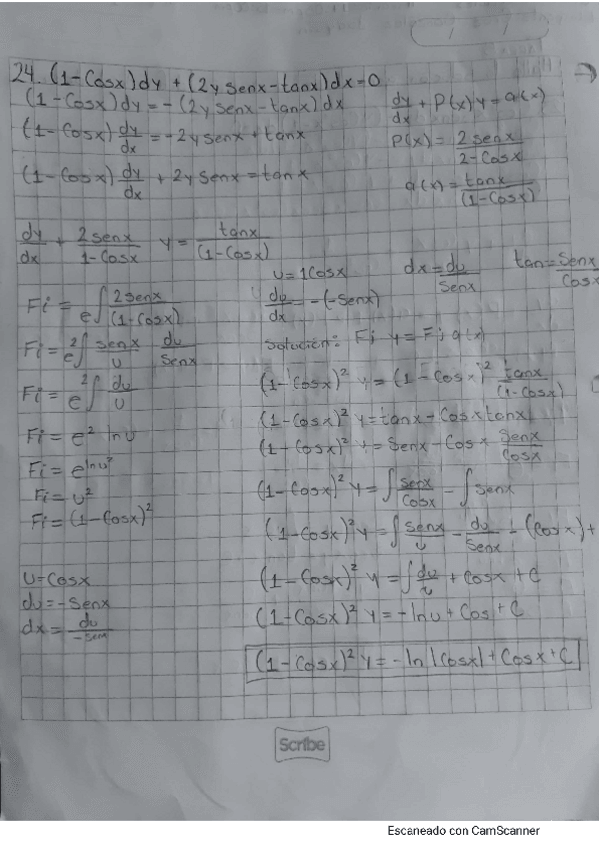 24. (1-Cosx)dy + (2y senx-tanx)dx=0
(1-Cosx)dy=-(2y senx-tanx)dx
(1-Cosx) dy/dx = -2y senx + tanx
(1-Cosx) dy/dx + 2y senx = tanx
dy/dx + P(x)y=q(x)
P(x)= 2senx/2-Cosx
q(x)= tanx/(1-Cosx)
dy/dx + 2senx/1-Cosx y = tanx/(1-Cosx)
u=1Cosx
dx= du/senx
tan= Senx/Cosx
du/dx = -(-Senx)
Fi = e∫ 2senx/(1-Cosx)
Fi= e 2∫ senx/u du/senx
Fi= e 2∫ du/u
Fi = e² lnu
Fi= e lnu²
Fi= u²
Fi= (1-Cosx)²
u=Cosx
du=-Senx
dx= du/-sen
Solución: Fi y = Fi q(x)
(1-Cosx)² y = (1-Cosx)² tanx/(1-Cosx)
(1-Cosx)² y=tanx-Cosx tanx
(1-Cosx)² y= Senx-Cosx Senx/Cosx
(1-Cosx)² y= ∫ senx/Cosx - ∫ senx
(1-Cosx)² y= ∫ senx/u - du/senx - (Cosx)+
(1-Cosx)² y = ∫ du/u + Cosx + C
(1-Cosx)² y = -lnu + Cos + C
(1-Cosx)² y = -ln|Cosx| + Cosx + C
Scribe
Escaneado con CamScanner